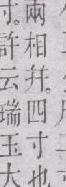 兩相幷。四寸也
寸。許云瑞玉大